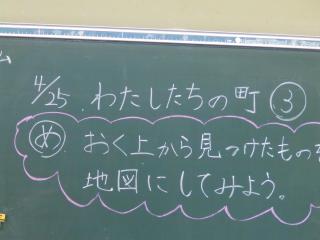 4/25 わたしたちの町 ③
め おく上から見つけたものを
地図にしてみよう。